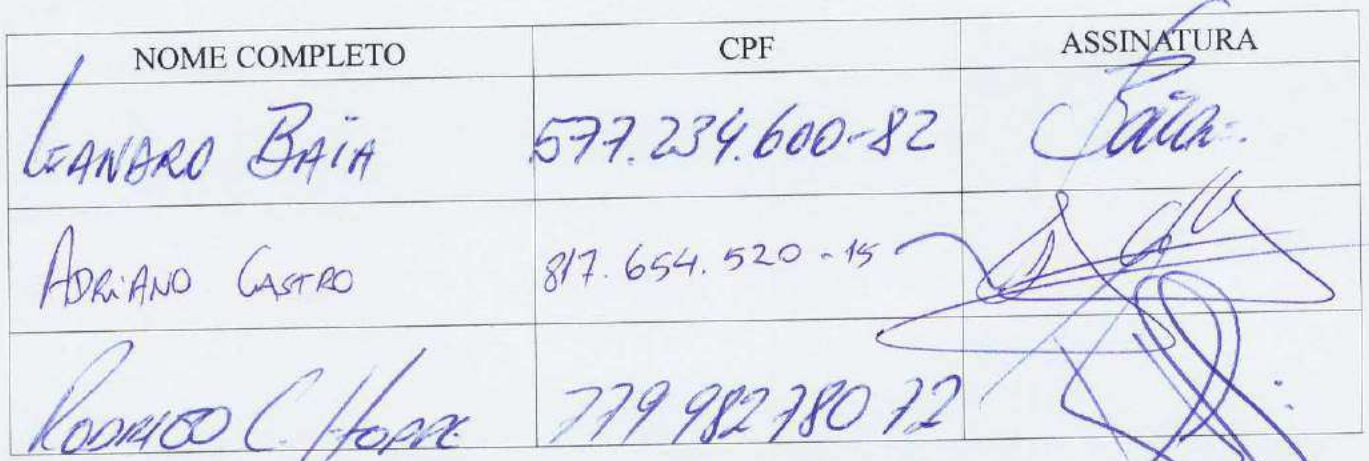 NOME COMPLETO CPF ASSINATURA
LEANDRO BAÏA 577.234.600-82 Baïa
ADRIANO CASTRO 817.654.520-15
RODRIGO C. HOPPE 779 982 780 72